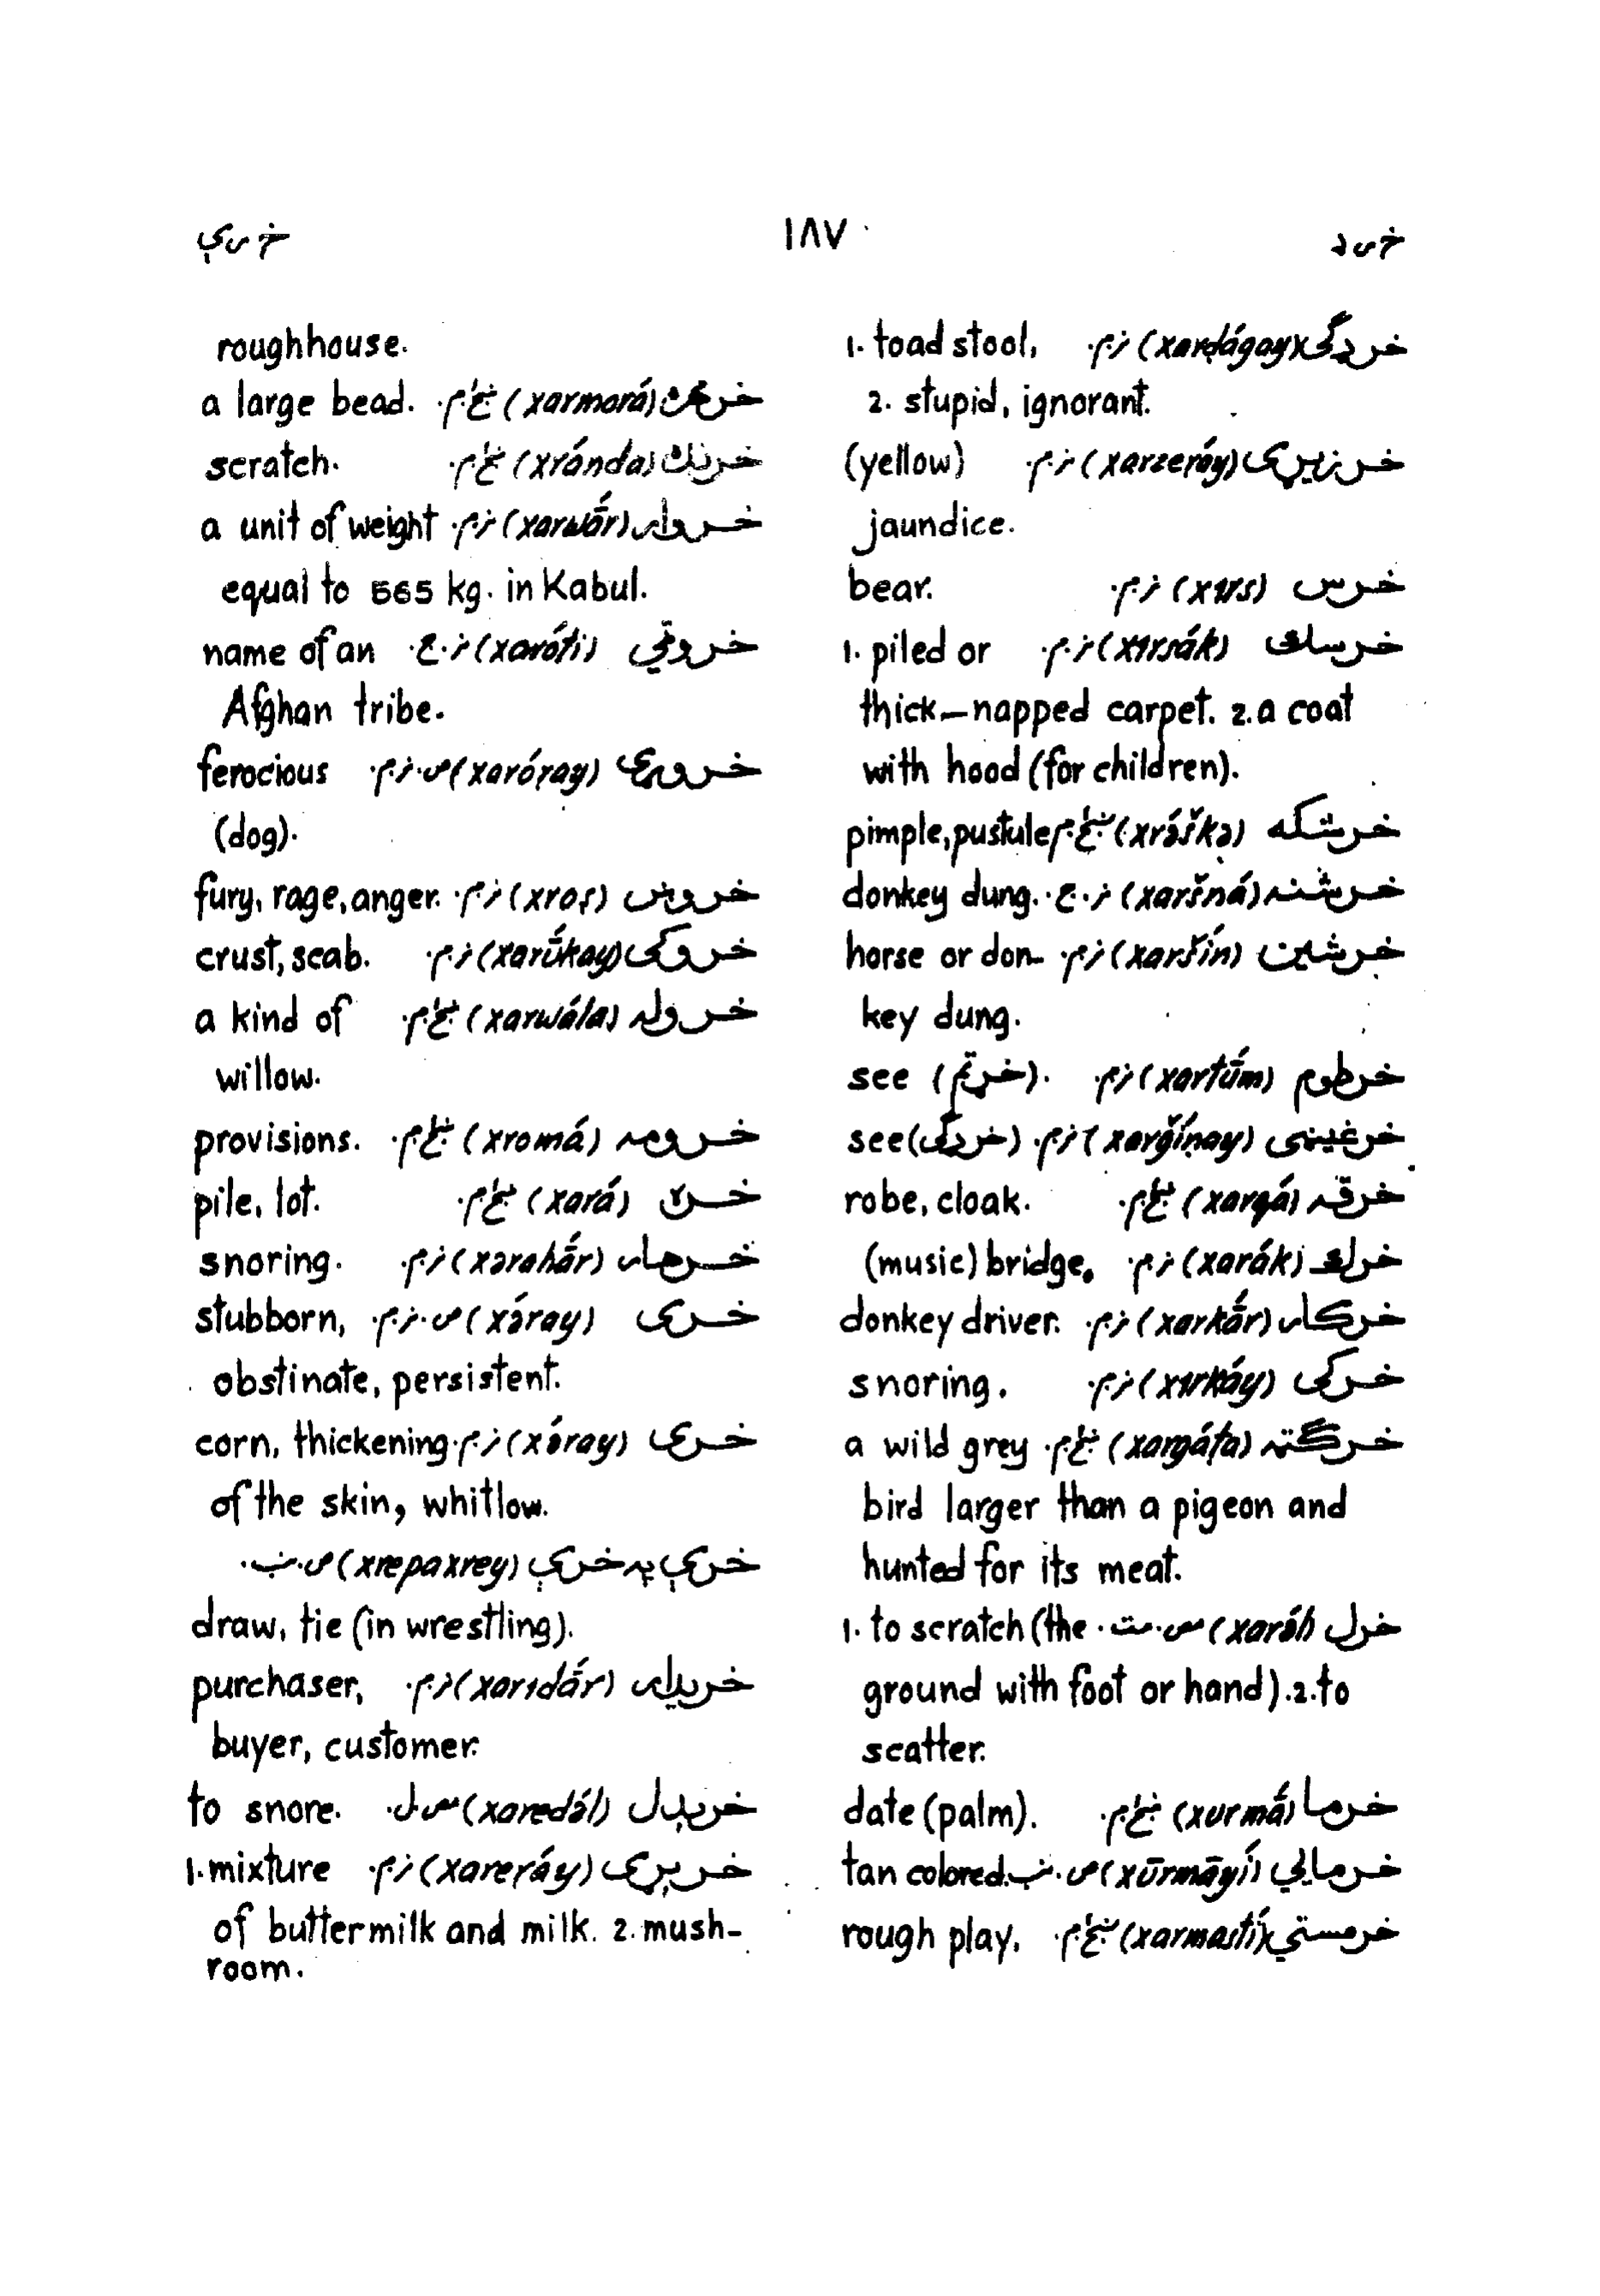 خرد
۱۸۷
خرې
خردګی (xarḍágay) ن.م. 1. toad stool,
2. stupid, ignorant.
خرزیړی (xarzeṛáy) ن.م. (yellow)
jaundice.
خرس (xɪrs) ن.م. bear.
خرسک (xɪrsák) ن.م. 1. piled or
thick-napped carpet. 2. a coat
with hood (for children).
خرشکه (xrә́škә) ښځ.م. pimple, pustule
خرشنه (xaršná) ن.ج. donkey dung.
خرشین (xaršín) ن.م. horse or don-
key dung.
خرطوم (xartū́m) ن.م. see (خرتم).
خرغینی (xarğínay) ن.م. see (خردګی)
خرقه (xarqá) ښځ.م. robe, cloak.
خرک (xarák) ن.م. (music) bridge.
خرکار (xarkā́r) ن.م. donkey driver.
خرکی (xɪrkáy) ن.م. snoring.
خرګټه (xargáṭa) ښځ.م. a wild grey
bird larger than a pigeon and
hunted for its meat.
خرل (xarә́l) مص.مت. 1. to scratch (the
ground with foot or hand). 2. to
scatter.
خرما (xurmā́) ښځ.م. date (palm).
خرمايي (xūrmāyí) ص.ښ. tan colored.
خرمستي (xarmastí) ښځ.م. rough play,
roughhouse.
خرمره (xarmorá) ښځ.م. a large bead.
خرنده (xránda) ښځ.م. scratch.
خروار (xarwā́r) ن.م. a unit of weight
equal to 565 kg. in Kabul.
خروټي (xaróṭi) ن.ج. name of an
Afghan tribe.
خروړی (xaróṛay) ص.ن.م. ferocious
(dog).
خروښ (xroṣ) ن.م. fury, rage, anger.
خروکی (xarū́kay) ن.م. crust, scab.
خروله (xarwála) ښځ.م. a kind of
willow.
خرومه (xromá) ښځ.م. provisions.
خره (xará) ښځ.م. pile, lot.
خرهار (xәrahā́r) ن.م. snoring.
خری (xә́ray) ص.ن.م. stubborn,
obstinate, persistent.
خری (xә́ray) ن.م. corn, thickening
of the skin, whitlow.
خرې په خرې (xrepaxrey) ص.ښ.
draw, tie (in wrestling).
خریدار (xarɪdā́r) ن.م. purchaser,
buyer, customer.
خرېدل (xaredә́l) مص.ل. to snore.
خرېړی (xareṛáy) ن.م. 1. mixture
of buttermilk and milk. 2. mush-
room.